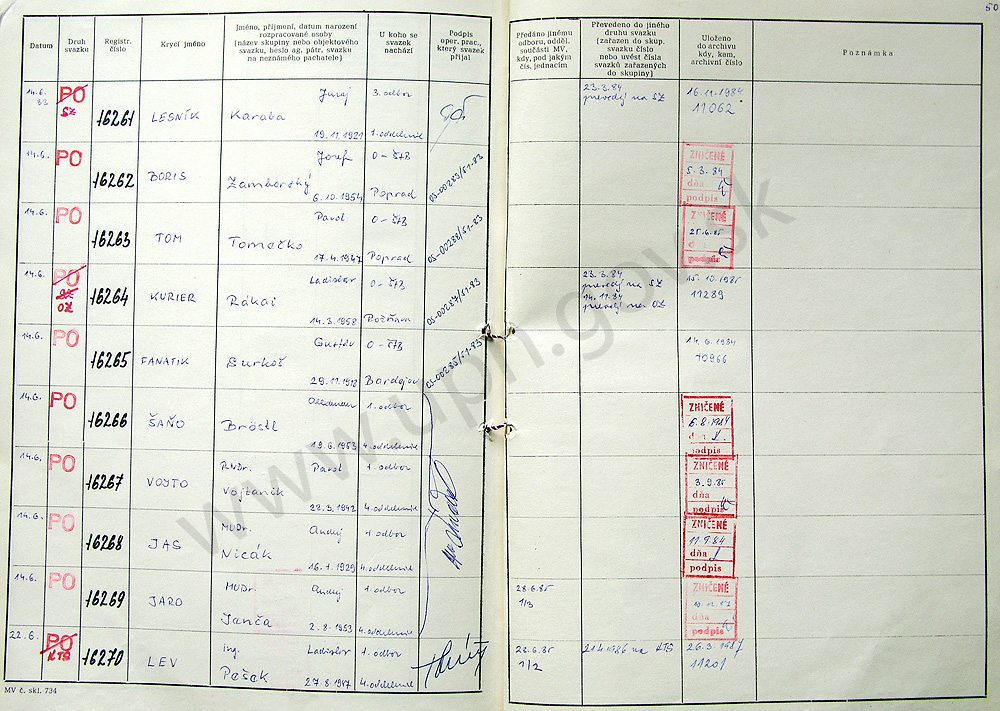 50
Datum
Druh svazku
Registr. číslo
Krycí jméno
Jméno, příjmení, datum narození
rozpracované osoby
(název skupiny nebo objektového
svazku, heslo ag. pátr. svazku
na neznámého pachatele)
U koho se
svazek
nachází
Podpis
oper. prac.,
který svazek
přijal
Předáno jinému
odboru, odděl.
součásti MV,
kdy, pod jakým
čís. jednacím
Převedeno do jiného
druhu svazku
(zařazen do skup.
svazku číslo
nebo uvést čísla
svazků zařazených
do skupiny)
Uloženo
do archivu
kdy, kam,
archivní číslo
Poznámka
14.6. 83 PO SZ 16261 LESNÍK Juraj Karaba 19.11.1921 3. odbor 1. oddelenie
23.3.84 prevedný na SZ 16.11.1984 11062
14.6. PO 16262 BORIS Jozef Zamborský 6.10.1954 O-ŠtB Poprad 03-00289/51-83
ZNIČENÉ 5.3.84 dňa podpis
14.6. PO 16263 TOM Pavol Tomečko 17.4.1947 O-ŠtB Poprad 03-00288/51-83
ZNIČENÉ 25.6.85 dňa podpis
14.6. PO OZ 16264 KURIER Ladislav Rákai 14.3.1958 O-ŠtB Rožňava 03-00287/51-83
23.3.84 prevedný na SZ
14.11.84 prevedný na OZ
15.10.1985 11289
14.6. PO 16265 FANATIK Gustáv Surkoš 29.11.1918 O-ŠtB Bardejov 03-00285/51-83
14.6.1984 10966
14.6. PO 16266 ŠAŇO Alexander Bröstl 19.6.1953 1. odbor 4. oddelenie
ZNIČENÉ 6.8.1984 dňa podpis
14.6. PO 16267 VOJTO RNDr. Pavol Vojtaník 22.3.1942 1. odbor 4. oddelenie
ZNIČENÉ 3.9.85 dňa podpis
14.6. PO 16268 JAS MUDr. Andrej Nicák 16.1.1929 1. odbor 4. oddelenie
ZNIČENÉ 11.9.84 dňa podpis
14.6. PO 16269 JARO MUDr. Andrej Janča 2.8.1953 1. odbor 4. oddelenie
28.6.85 1/3
ZNIČENÉ dňa podpis
22.6. PO KTS 16270 LEV Ing. Ladislav Pešek 27.8.1947 1. odbor 4. oddelenie
28.6.85 1/2 21.4.1986 na KTS 26.3.1987 11201
MV č. skl. 734
www.upn.gov.sk